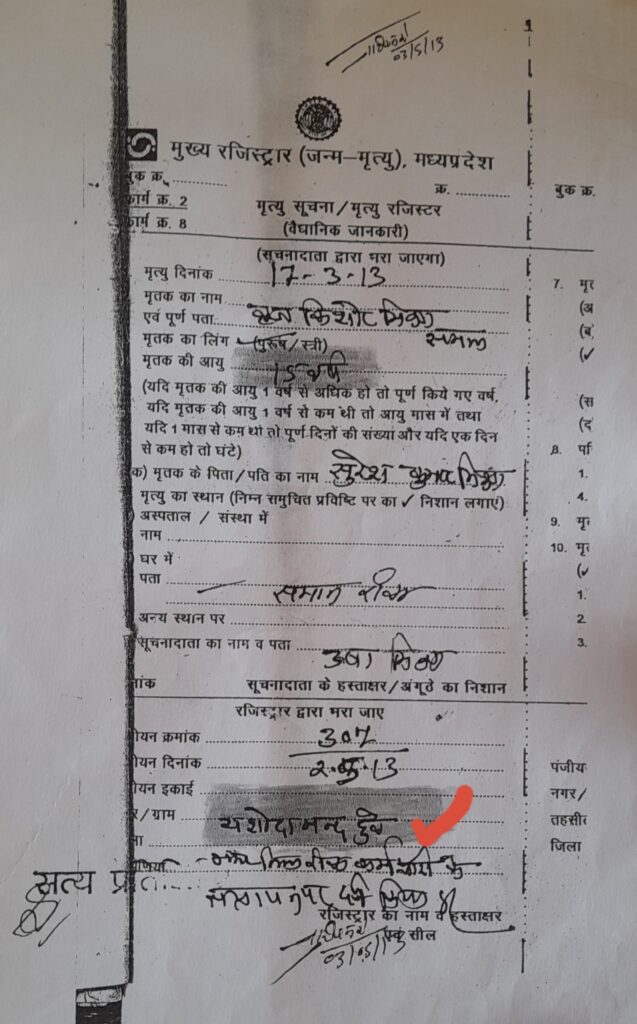 03/5/13
मुख्य रजिस्ट्रार (जन्म–मृत्यु), मध्यप्रदेश
बुक क्र. क्र. बुक क्र.
फार्म क्र. 2 मृत्यु सूचना/मृत्यु रजिस्टर
फार्म क्र. 8 (वैधानिक जानकारी)
(सूचनादाता द्वारा भरा जाएगा)
मृत्यु दिनांक 17-3-13 7. मृत
मृतक का नाम (अ
एवं पूर्ण पता: किशोर मिश्रा (ब
समान
मृतक का लिंग (पुरुष/स्त्री) (✓
मृतक की आयु
15 वर्ष
(यदि मृतक की आयु 1 वर्ष से अधिक हो तो पूर्ण किये गए वर्ष, (स
यदि मृतक की आयु 1 वर्ष से कम थी तो आयु मास में तथा
यदि 1 मास से कम थी तो पूर्ण दिनों की संख्या और यदि एक दिन (द
से कम हो तो घंटे) 8. परि
क) मृतक के पिता/पति का नाम सुरेश कुमार मिश्रा 1.
मृत्यु का स्थान (निम्न समुचित प्रविष्टि पर का ✓ निशान लगाएं) 4.
) अस्पताल / संस्था में 9. मृ
नाम 10. मृ
) घर में (✓
पता समान रीवा 1.
अन्य स्थान पर 2
सूचनादाता का नाम व पता 3.
उषा मिश्रा
नांक सूचनादाता के हस्ताक्षर/अंगूठे का निशान
रजिस्ट्रार द्वारा भरा जाए
ीयन क्रमांक 307
ीयन दिनांक 2-5-13 पंजीय
ीयन इकाई नगर/
र/ग्राम यशोदा नन्द दुबे तहसील
जिला
सत्य प्रति
दर्ज किया
रजिस्ट्रार का नाम व हस्ताक्षर
एवं सील
03/05/13